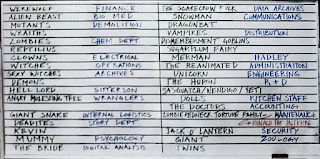 WEREWOLF FINANCE THE SCARECROW FOLK DATA ARCHIVES
ALIEN BEAST BIO MED SNOWMAN COMMUNICATIONS
MUTANTS DEMOLITION DRAGONBAT
WRAITHS VAMPIRES DISTRIBUTION
ZOMBIES CHEM DEPT DISMEMBERMENT GOBLINS
REPTILIUS SUGARPLUM FAIRY
CLOWNS ELECTRICAL MERMAN HADLEY
WITCHES OPERATIONS THE REANIMATED ADMINISTRATION
SEXY WITCHES ARCHIVES UNICORN ENGINEERING
DEMONS THE HURON R+D
HELL LORD SITTERSON SASQUATCH/WENDIGO/YETI
ANGRY MOLESTING TREE WRANGLERS DOLLS KITCHEN STAFF
THE DOCTORS ACCOUNTING
GIANT SNAKE INTERNAL LOGISTICS ZOMBIE REDNECK TORTURE FAMILY - MAINTENANCE
DEADITES STORY DEPT THE INTERN
KEVIN JACK O LANTERN SECURITY
MUMMY PSYCHOLOGY GIANT ZOOLOGY
THE BRIDE DIGITAL ANALYSIS TWINS